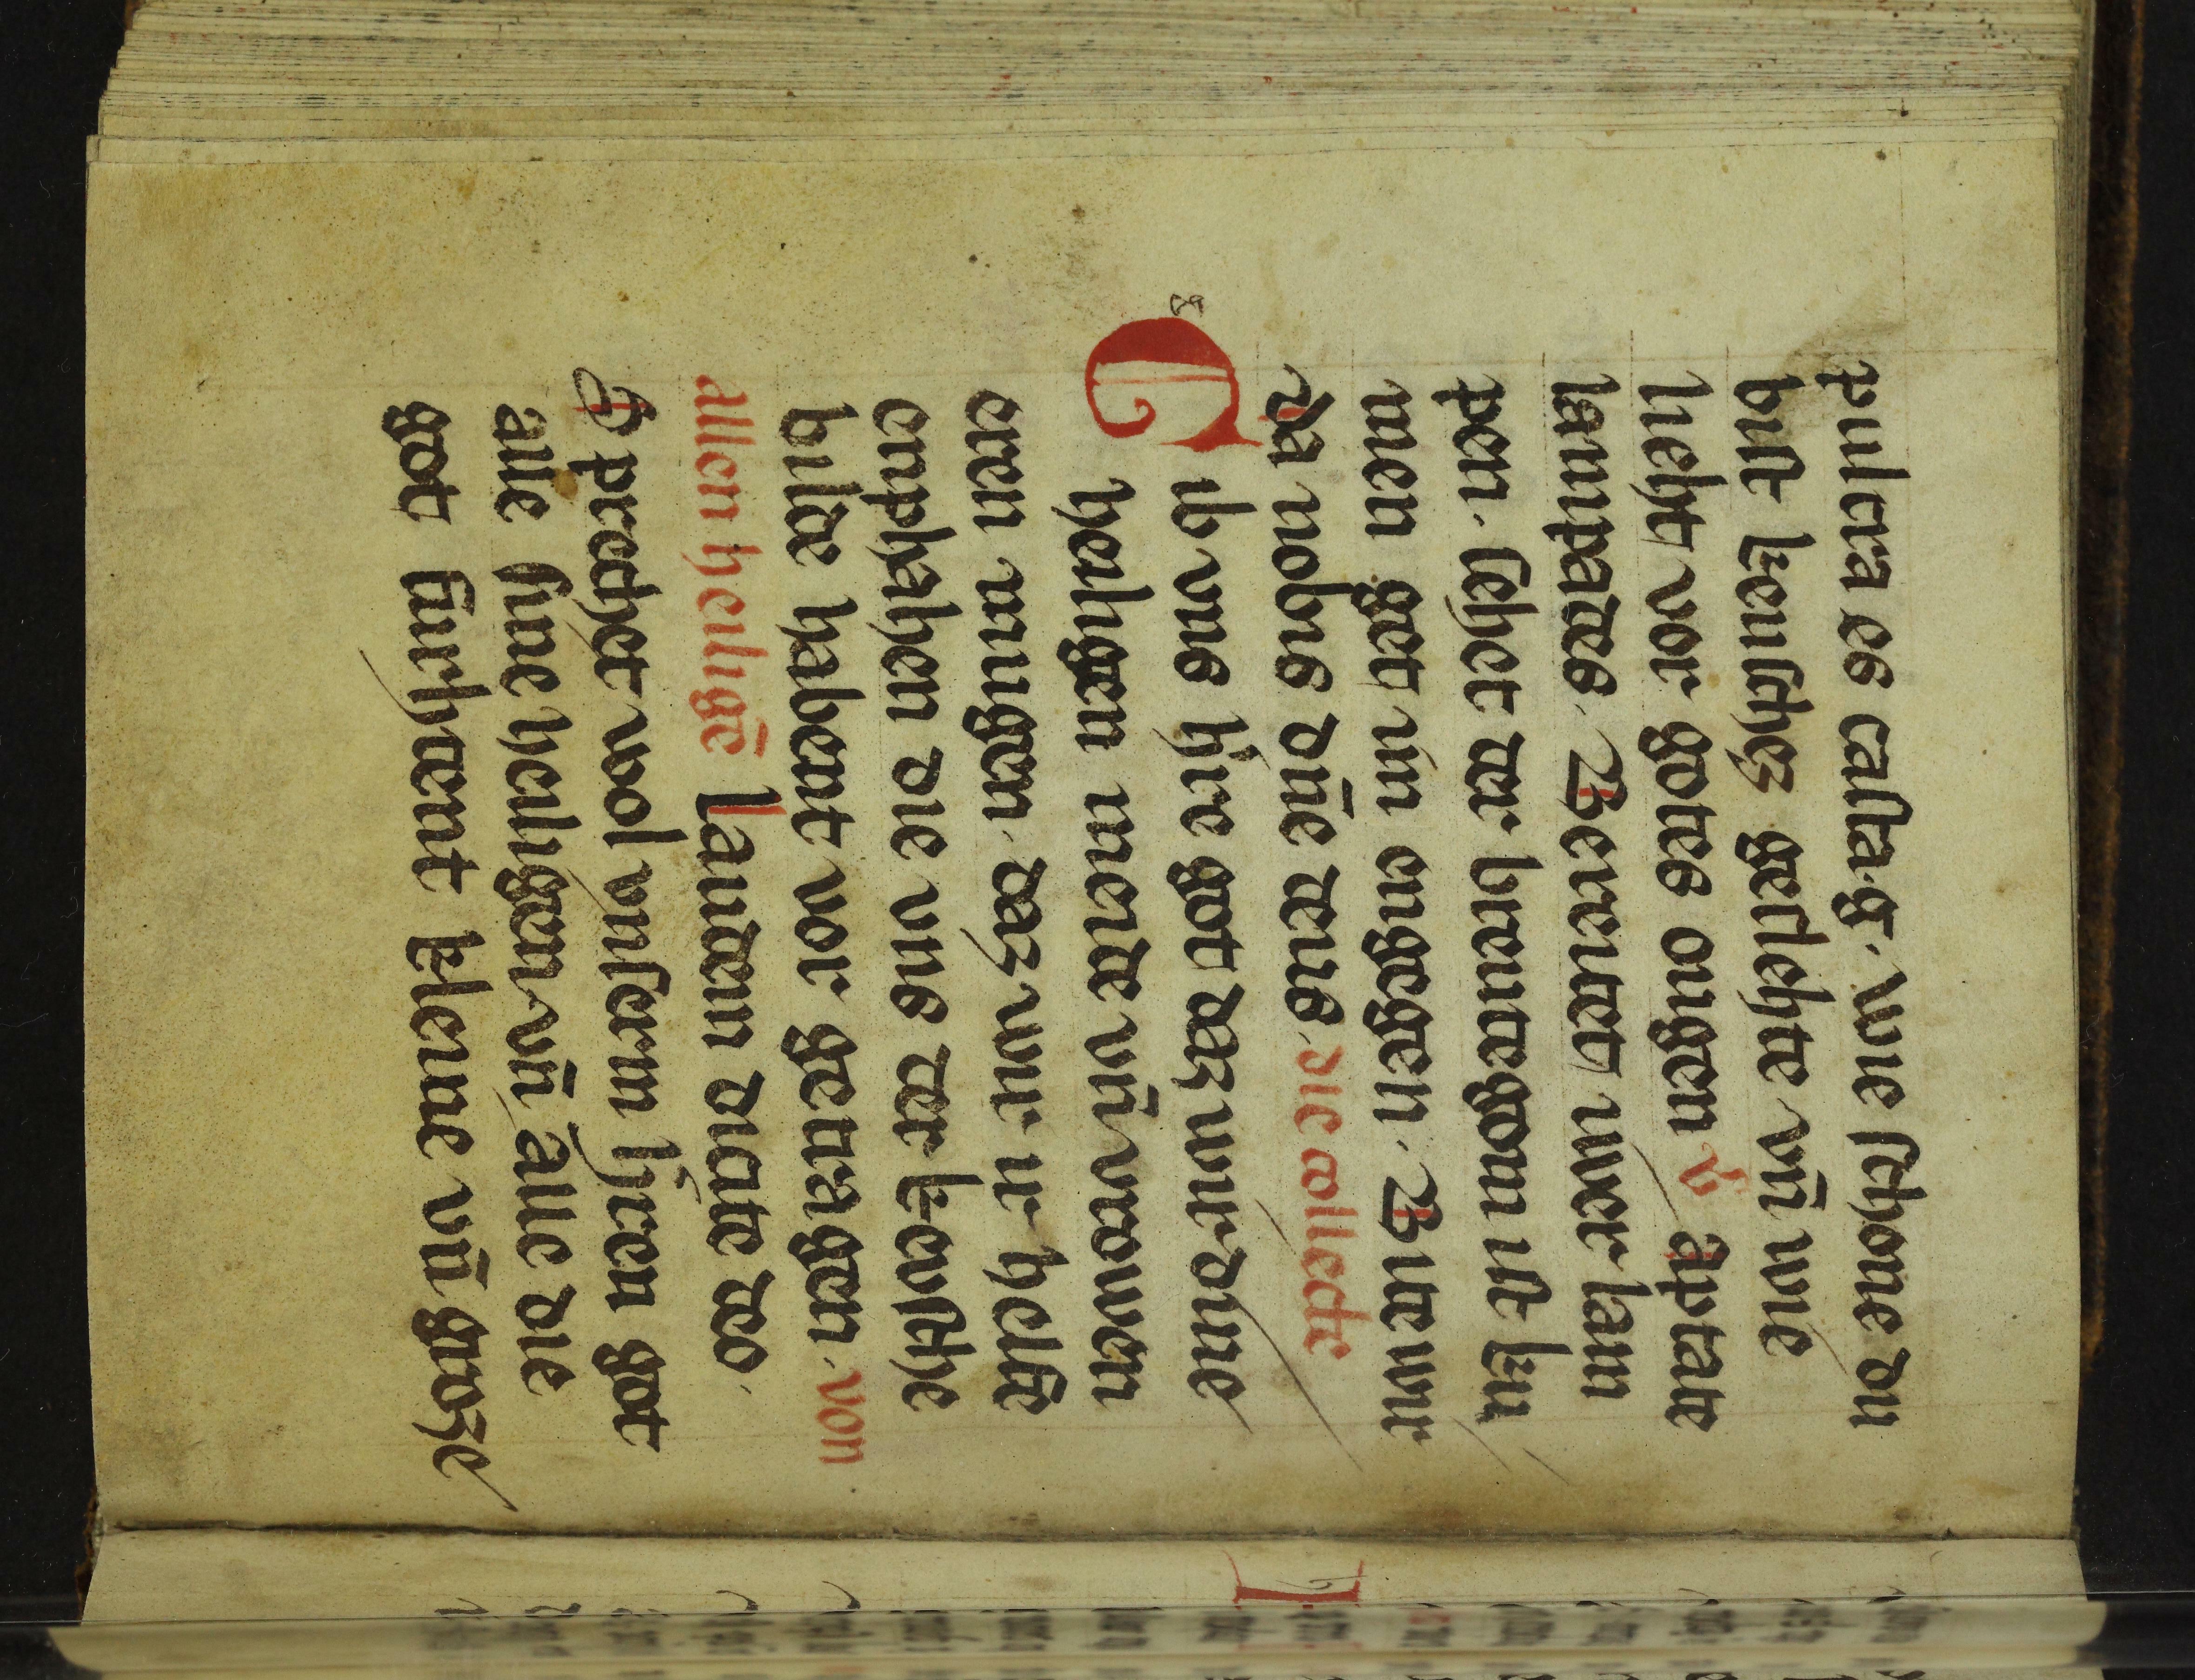 pulcra es casta.g. wie schone du
bist keuschez geslehte vn̄ wie
lieht vor gotes ougen v̓ aptate
lampades. Bereitet iwer lam
pen. sehet der breutegom ist ku
men get im engegen. wir
da nobis dn̄e deus. die
Gib vns h̓re got daz wir dine
heiligen meide vn̄ vrowen
eren mugen. daz wir ir helfe
enphahen die vns der kewsche
bilde habent vor getragen. von
allen heligē Laudem dicite deo
Sprechet wol vnserm h̓ren got
alle sine heiligen vn̄ alle die
got furhtent kleine vn̄ groze